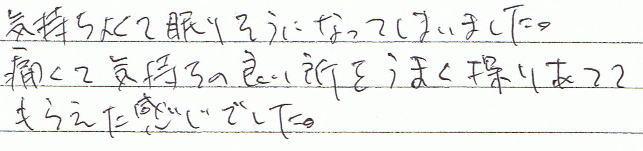 気持ちよくて眠りそうになってしまいました。
痛くて気持ちの良い所をうまく探りあてて
もらえた感じでした。